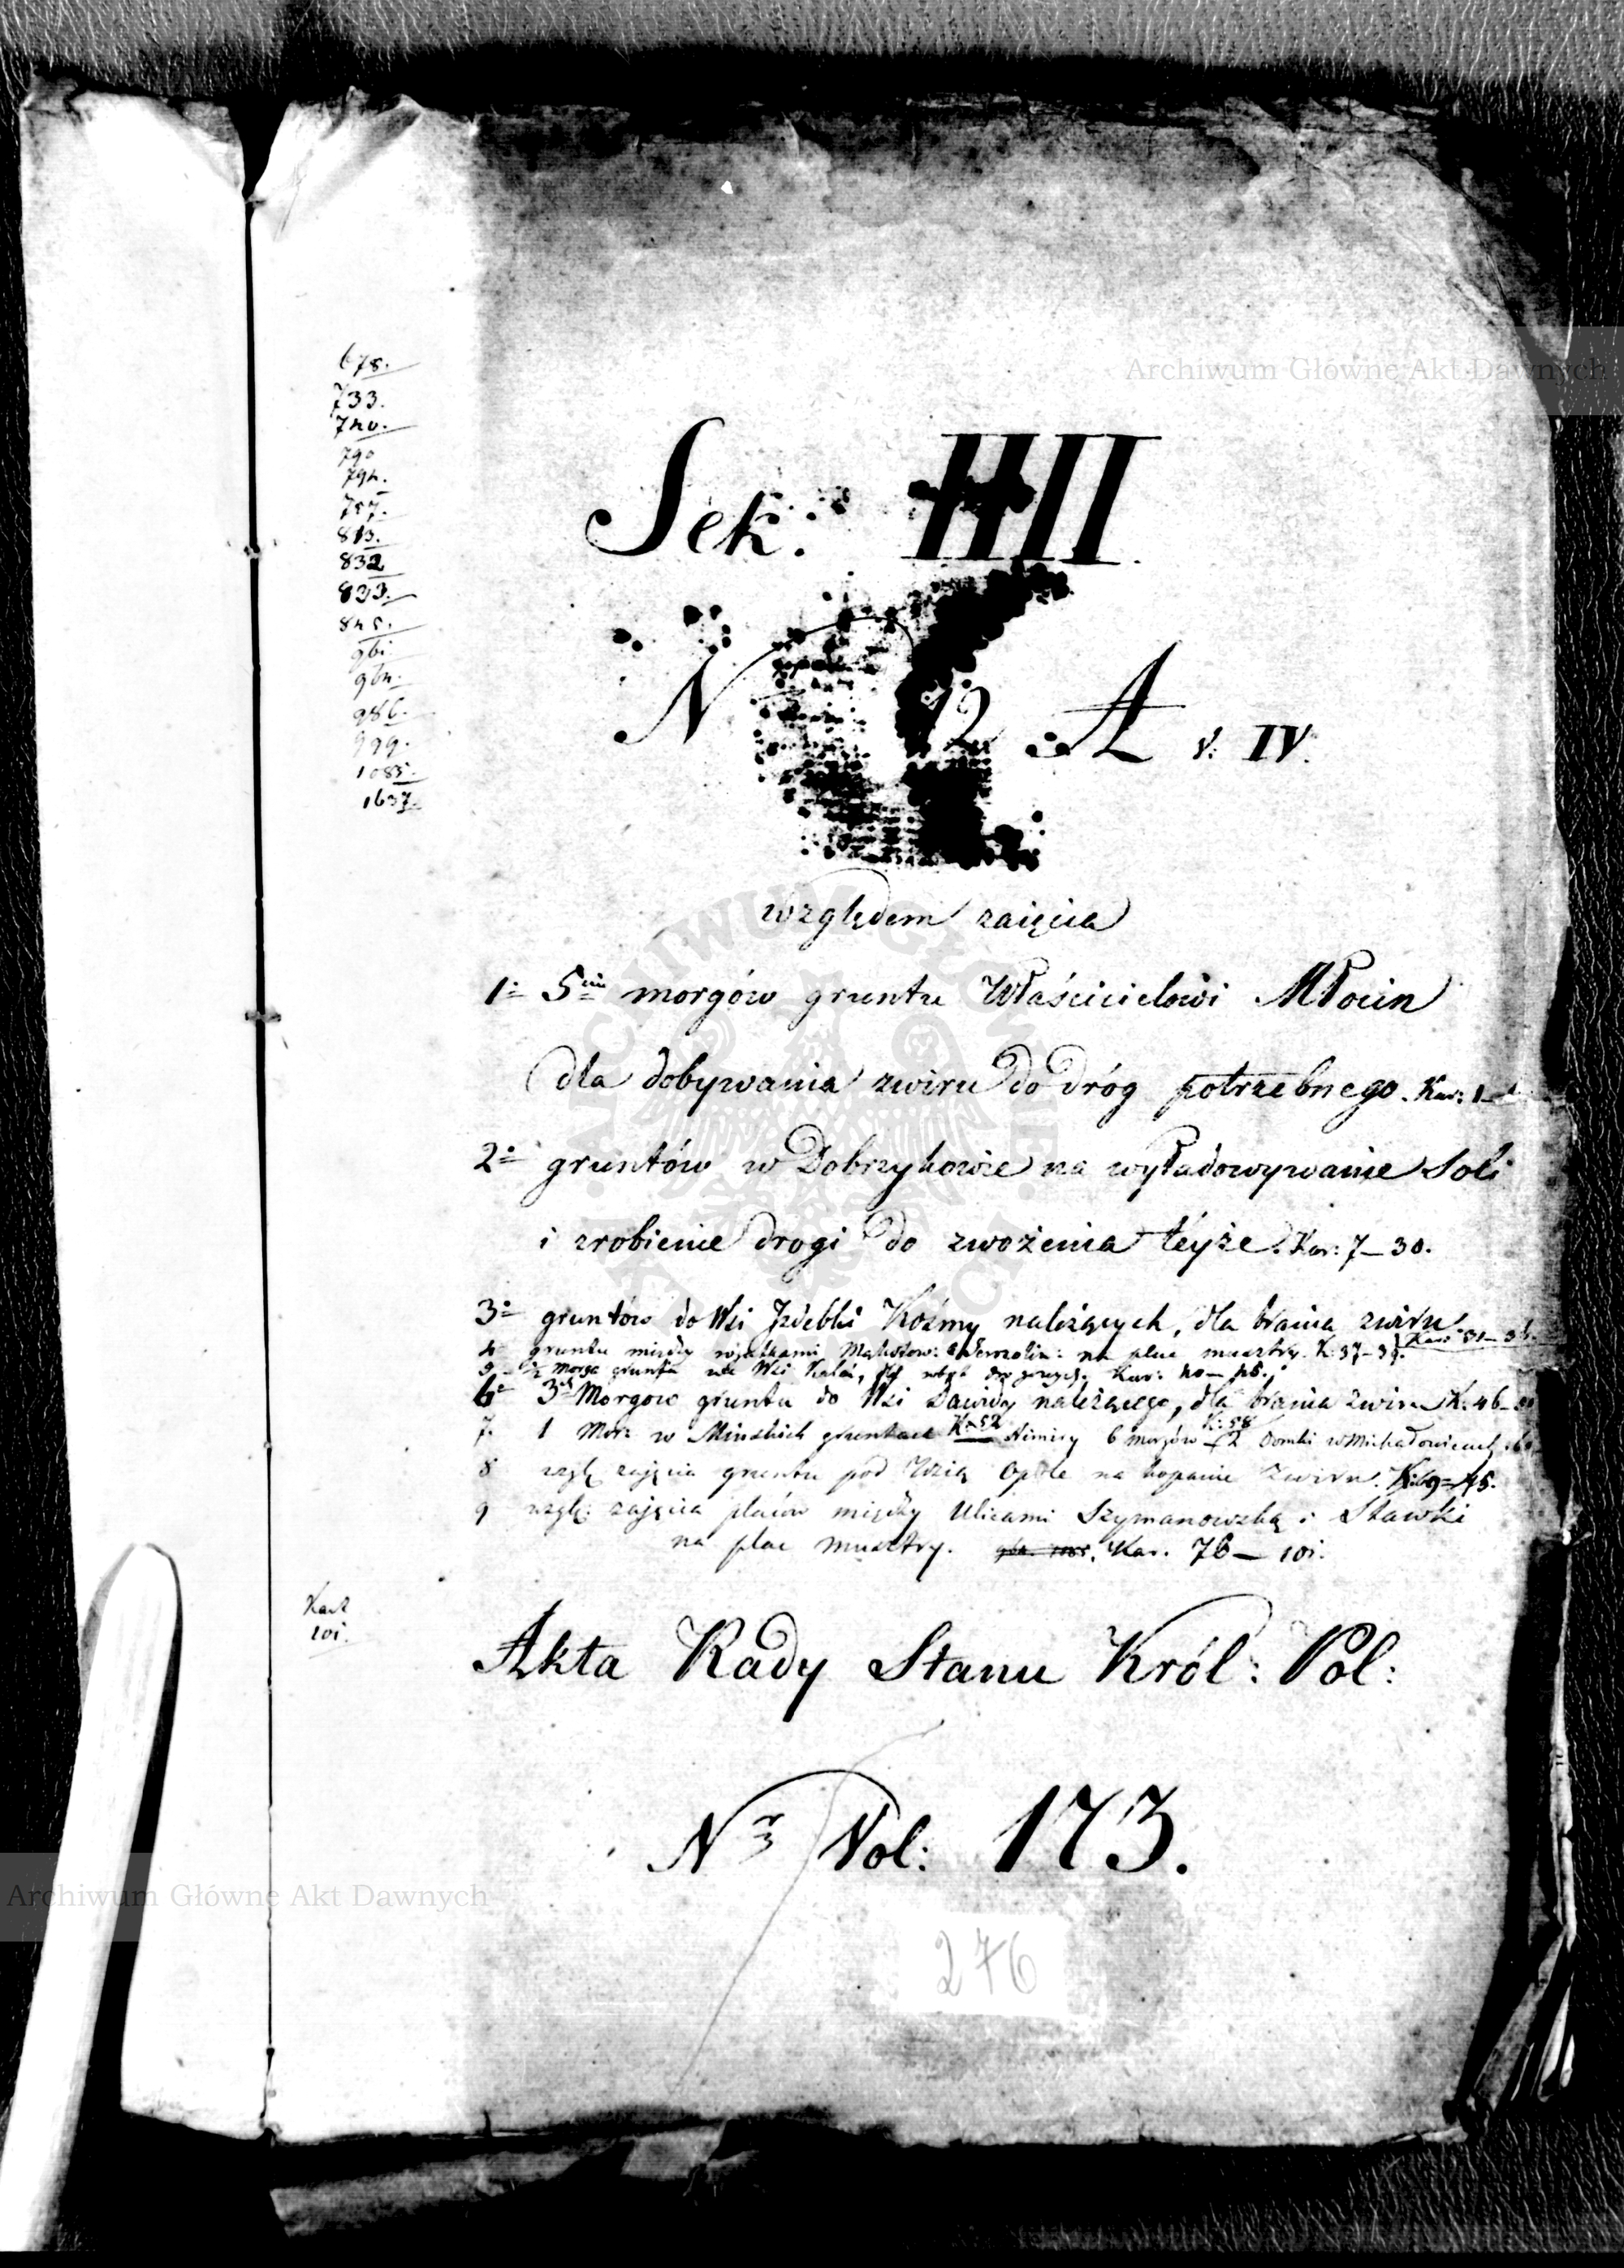 678.
733.
740.
790
794.
797.
813.
832
833.
845.
961.
964.
986.
999.
1085.
1637.
Archiwum Główne Akt Dawnych
Sek: III.
N 12 A v: IV.
względem zaięcia
1º 5ciu morgów gruntu Właścicielowi Młocin
dla dobywania zwiru do dróg potrzebnego. Kar: 1
2º gruntów w Dobrzykowie na wyładowywanie Soli
i zrobienie drogi do zwożenia téyże. Kar: 7–30.
3º gruntów do Wsi Jzdebki Koźmy należących, dla brania zwiru
Kar: 31–36.
4 gruntu między rogatkami na plac musztry. K: 37–39.
5 morga gruntu we Wsi Kar: 40–45.
6º 3ch Morgów gruntu do Wsi Dawidy należącego, dla brania zwiru K: 46–
7. 1 Mor: w Mińskich gruntach K. 52 6 morgów K: 58 2 Domki w Michałowicach
8 wzgl. zajęcia gruntu pod Wsią Opole na kopanie zwiru. K: 69–75.
9 wzgl: zajęcia placów między Ulicami Szymanowską i Stawki
na plac musztry. Kar. 76–101.
Kart
101.
Akta Rady Stanu Król: Pol:
Nr Vol: 173.
Archiwum Główne Akt Dawnych
276
ARCHIWUM GŁÓWNE AKT